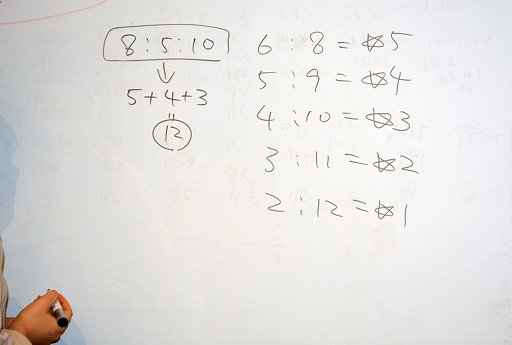 8:5:10
↓
5+4+3
=
12
6:8=☆5
5:9=☆4
4:10=☆3
3:11=☆2
2:12=☆1